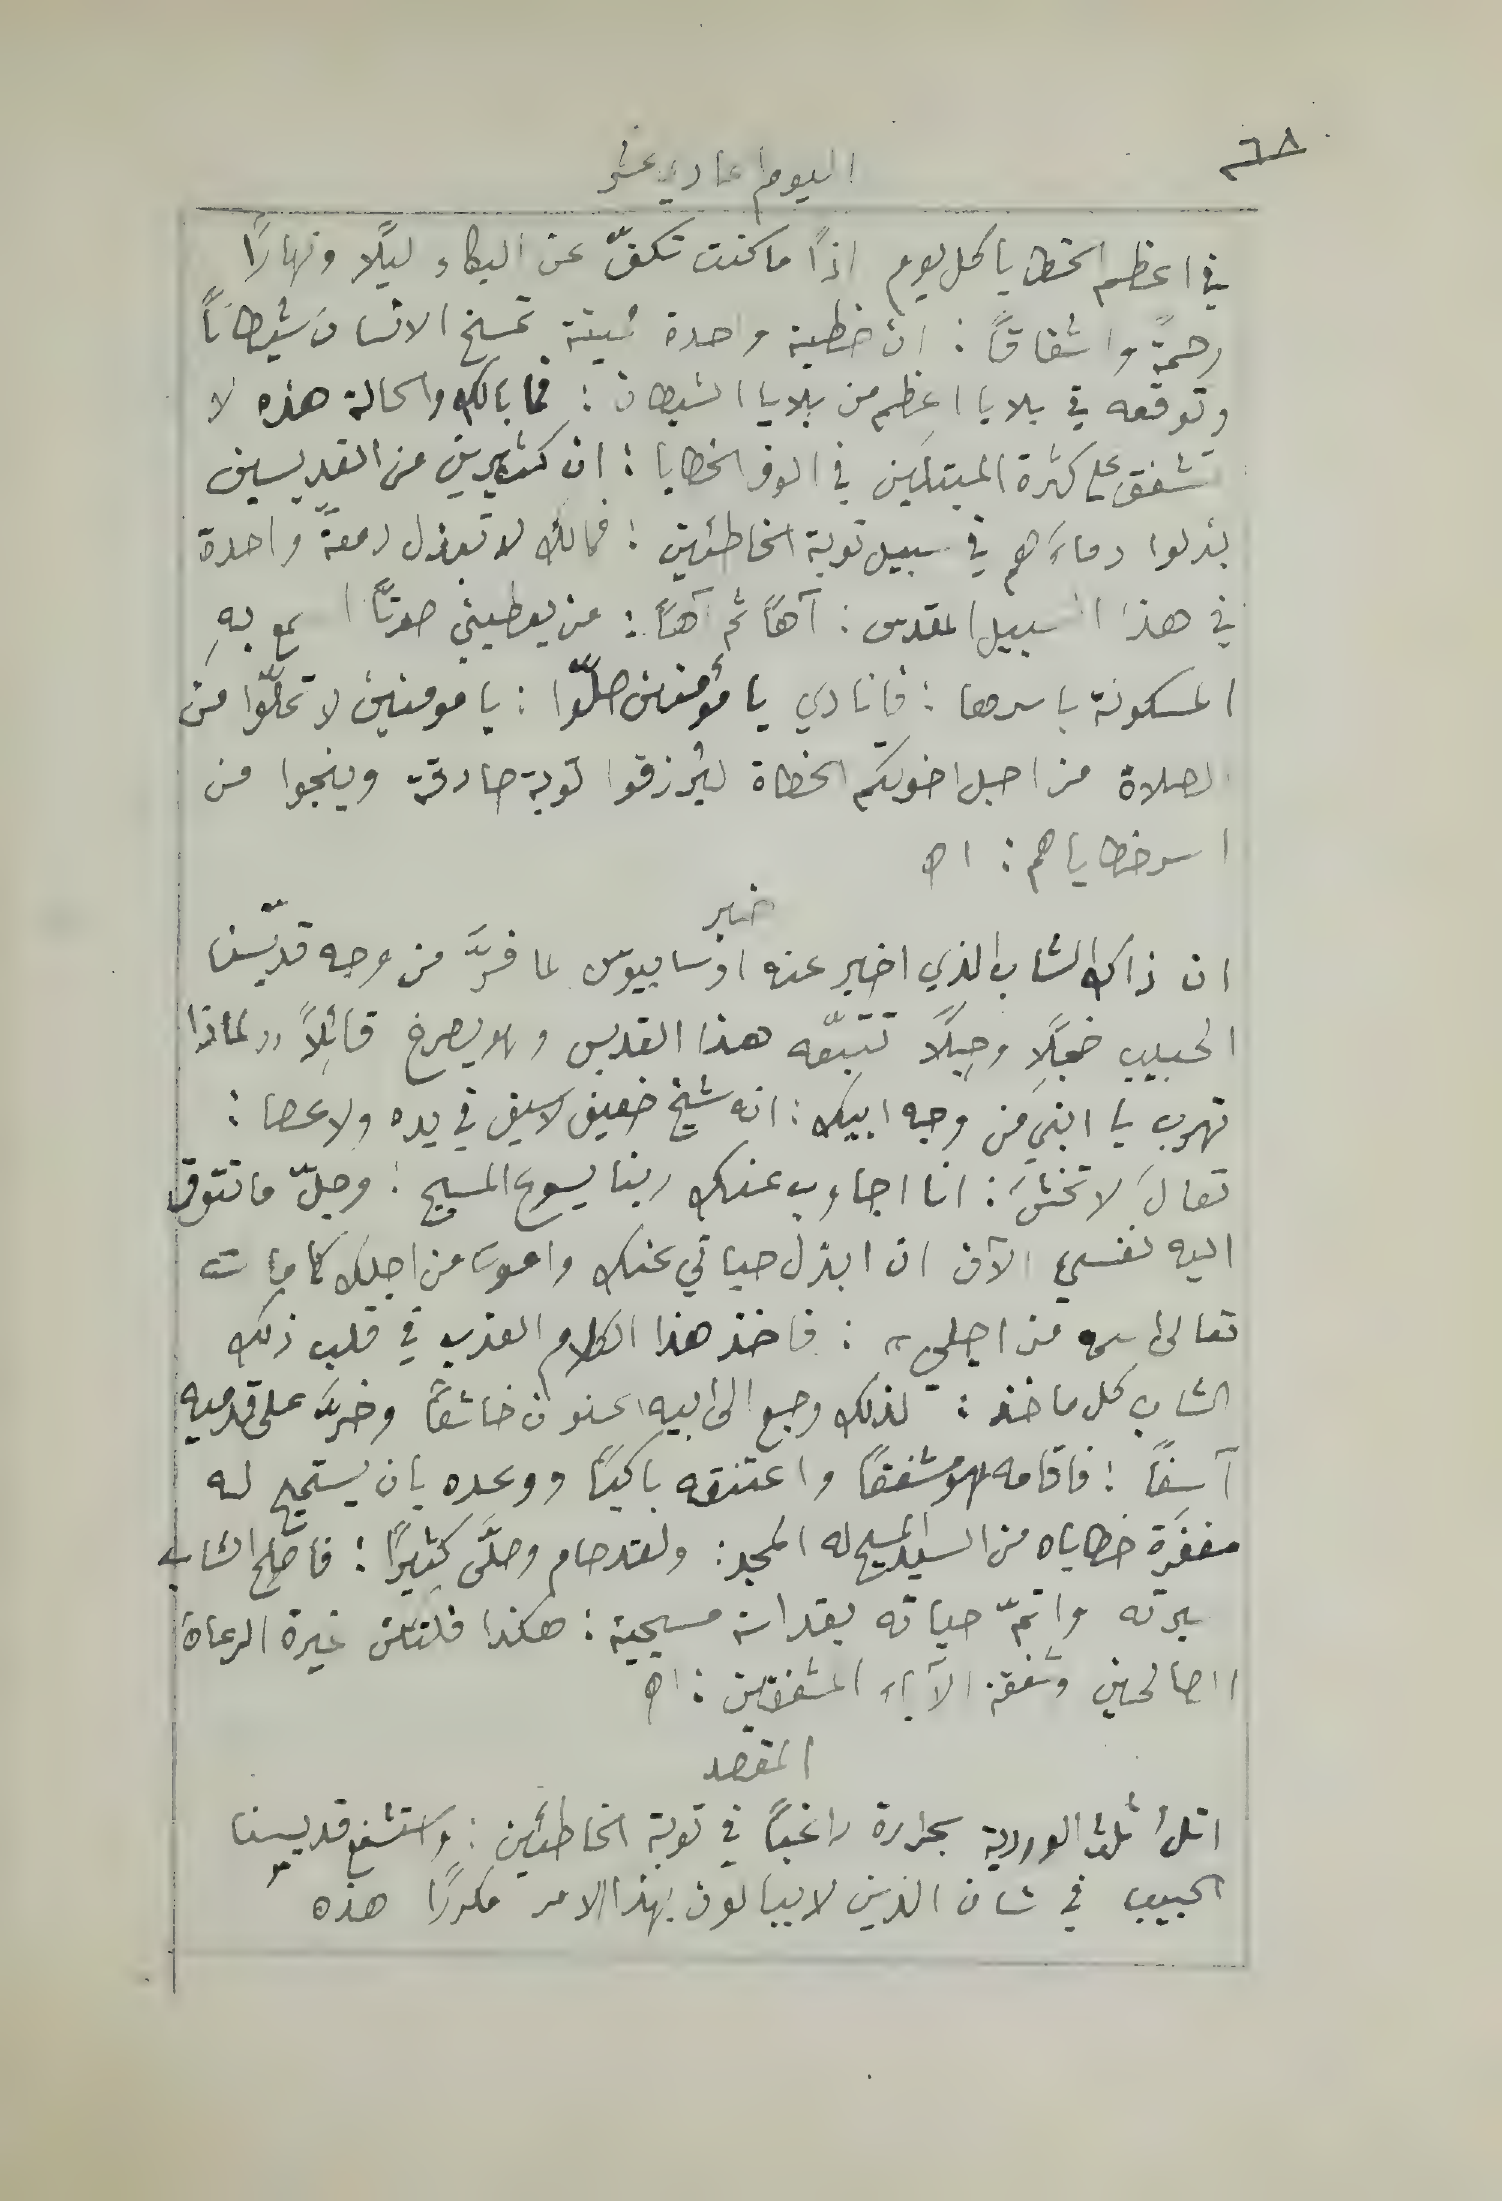 ٦٨
اليوم حادي عشر
في اعظم الخطايا كل يوم اذًا ما كنت تكفّ عن البكاء ليلًا ونهارًا
رحمةً واشفاقًا : ان خطية واحدة مميتة تمسخ الانسان شيطانًا
وتوقعه في بلايا اعظم من بلايا الشيطان : فما بالك والحالة هذه لا
تشفق على كثرة المبتلين في الوف الخطايا : ان كثيرين من القديسين
بذلوا دماءهم في سبيل توبة الخاطئين : فمالك لا تبذل دمعةً واحدة
في هذا السبيل المقدس : آهًا ثم آهًا : من يعطيني صوتًا يسمع بهِ
المسكونة باسرها : فانادي يا مؤمنين صلّوا : يا مومنين لا تملّوا من
الصلاة من اجل اخوتكم الخطاة ليُرزقوا توبة صادقة وينجوا من
اسر خطاياهم : اه
خبر
ان ذاك الشاب الذي اخبر عنه اوسابيوس لما فرَّ من وجه قدّيسنا
الحبيب خجلًا وجلًا تتبّعه هذا القديس وهو يصرخ قائلًا „ لماذا
تهرب يا ابني من وجه ابيك : انه شيخ ضعيف لا سيف في يده ولا عصا :
تعالَ لا تخشَ : انا اجاوب عنك ربنا يسوع المسيح : وجلّ ما تتوق
اليه نفسي الآن ان ابذل حياتي عنك واموت من اجلك كما مات
تعالى اسمه من اجلي " : فاخذ هذا الكلام العذب في قلب ذلك
الشاب كل ماخذ : لذلك رجع الى ابيه الحنون خاشعًا وخرَّ على قدميه
آسفًا : فاقامه هو مشفقًا واعتنقه باكيًا ووعده بان يستميح له
مغفرة خطاياه من السيد المسيح له المجد : ولقد صام وصلَّى كثيرًا : فاصلح الشاب
سيرته واتمّ حياته بقداسة مسيحية : هكذا فلتكن غيرة الرعاة
الصالحين وشفقة الآباء المشفقين : اه
المقصد
اتلُ ثلث الوردية بحرارة راغبًا في توبة الخاطئين : واستشفع قديسنا
الحبيب في شان الذين لا يبالون بهذا الامر مكررًا هذه